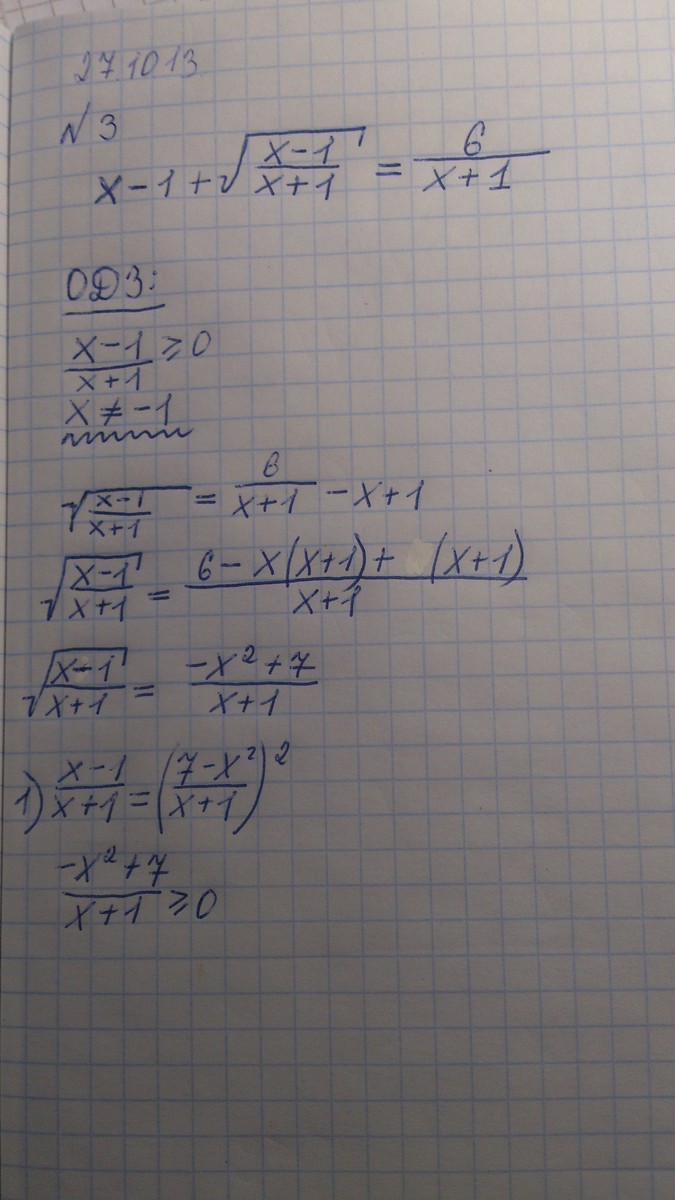 27.10 13
№3
x-1+√((x-1)/(x+1)) = 6/(x+1)
ОДЗ:
(x-1)/(x+1) ≥ 0
x ≠ -1
√((x-1)/(x+1)) = 6/(x+1) - x + 1
√((x-1)/(x+1)) = (6 - x(x+1) + (x+1))/(x+1)
√((x-1)/(x+1)) = (-x² + 7)/(x+1)
1) (x-1)/(x+1) = ((7-x²)/(x+1))²
(-x² + 7)/(x+1) ≥ 0